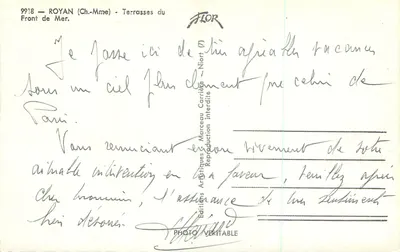 9918 — ROYAN (Ch.-Mme) - Terrasses du
Front de Mer.
FLOR
Je passe ici de très agréables vacances
sous un ciel plus clément que celui de
Paris.
Vous remerciant encore vivement de votre
aimable intervention en ma faveur, veuillez agréer
cher monsieur, l'assurance de mes sentiments
bien dévoués.
Editions Artistiques Marceau Carrière - Niort (S)
Reproduction interdite
PHOTO VÉRITABLE